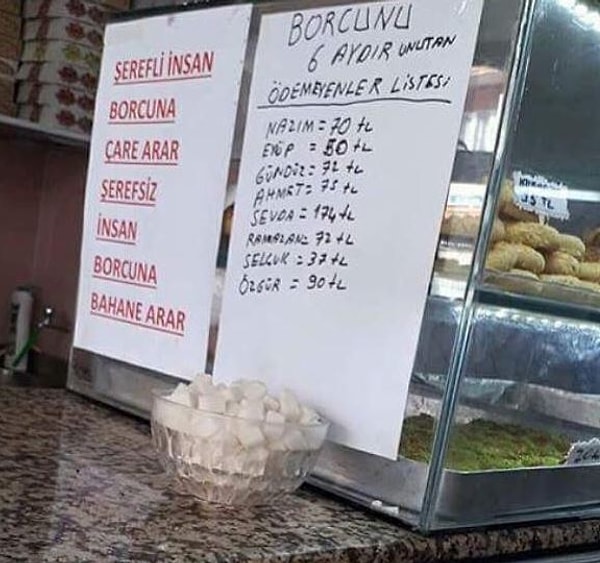 ŞEREFLİ İNSAN
BORCUNA
ÇARE ARAR
ŞEREFSİZ
İNSAN
BORCUNA
BAHANE ARAR
BORCUNU
6 AYDIR UNUTAN
ÖDEMEYENLER LİSTESİ
NAZIM = 70 tL
EYÜP = 80 tL
GÜNDÜZ = 72 tL
AHMET = 75 tL
SEVDA = 174 tL
RAMAZAN = 72 tL
SELÇUK = 37 tL
ÖZGÜR = 90 tL
35 TL